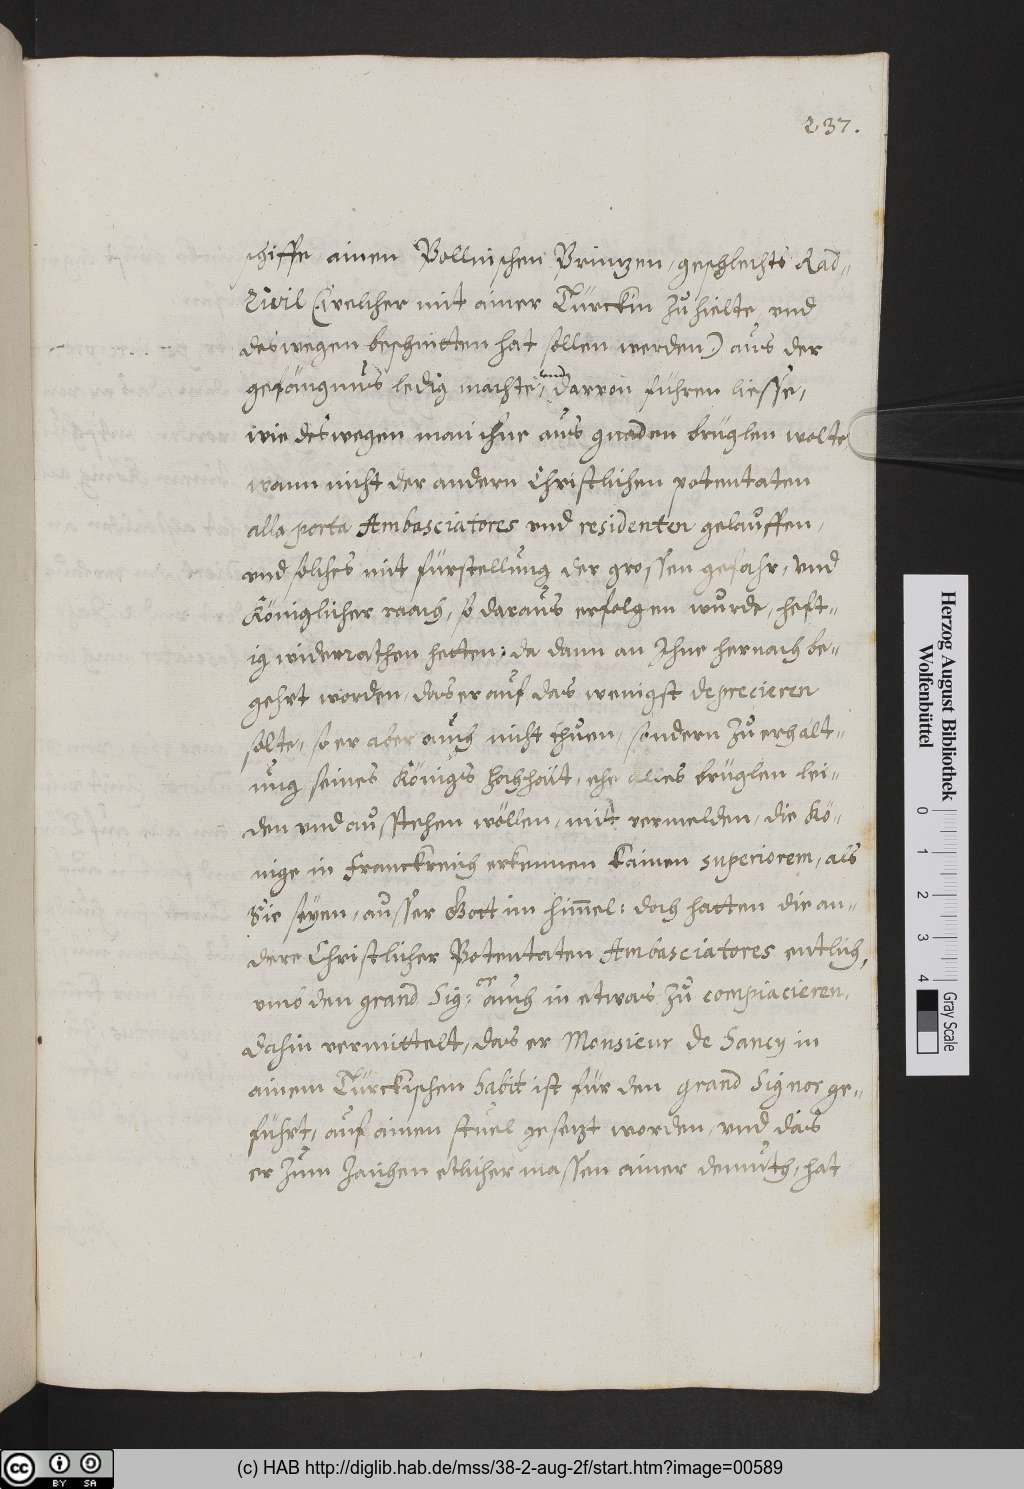 237.
schiffe ainen Pollnischen Printzen, geschlechts Rad-
ziwil (welcher mit ainer Türckin zu hielte, und
deswegen beschnitten hat sollen werden) aus der
gefängnus ledig machte, und darvon führen liesse,
wie deswegen man ihne aus gnaden brüglen wolte,
wann nicht der andern Christlichen potentaten
alla porta Ambasciatores und residenten geloffen,
und solches mit fürstellung der grossen gefahr, und
Königlicher raach, so daraus erfolgen wurde, heft-
ig widerrathen hetten: da dann an Ihne hernach be-
gehrt worden, das er auf das wenigst deprecieren
solte, so er aber auch nicht thuen, sondern zu erhalt-
ung seines Königs hochhait, ehe alles brüglen lei-
den und ausstehen wöllen, mit vermelden, die Kö-
nige in Franckreich erkennen kainen superiorem, als
Sie seyen, ausser Gott im himmel: doch hatten die an-
dere Christlicher Potentaten Ambasciatores entlich,
umb den grand Sig:or auch in etwas zu compiacieren,
dahin vermittelt, das er Monsieur de Sancy in
ainem Türckischen habit ist für den grand Signor ge-
führt, auf ainen stuel gesezt worden, und das
er zum zaichen etlicher massen ainer demuth, hat
Herzog August Bibliothek
Wolfenbüttel
0 1 2 3 4
Gray Scale
cc BY SA
(c) HAB http://diglib.hab.de/mss/38-2-aug-2f/start.htm?image=00589